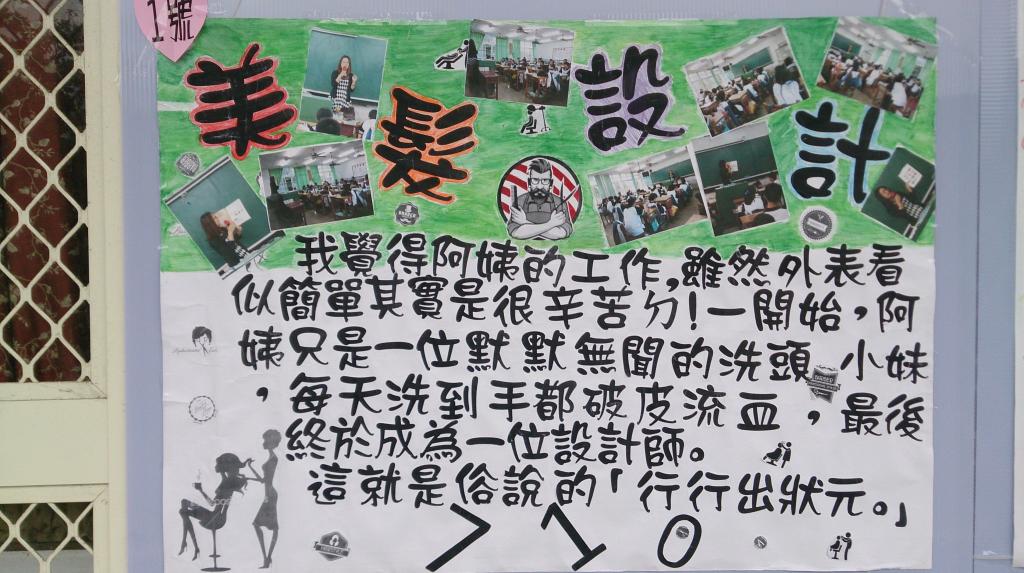 1號
美髮設計
我覺得阿姨的工作,雖然外表看
似簡單其實是很辛苦ㄉ!一開始，阿
姨只是一位默默無聞的洗頭小妹
，每天洗到手都破皮流血，最後
終於成為一位設計師。
這就是俗說的「行行出狀元。」
710